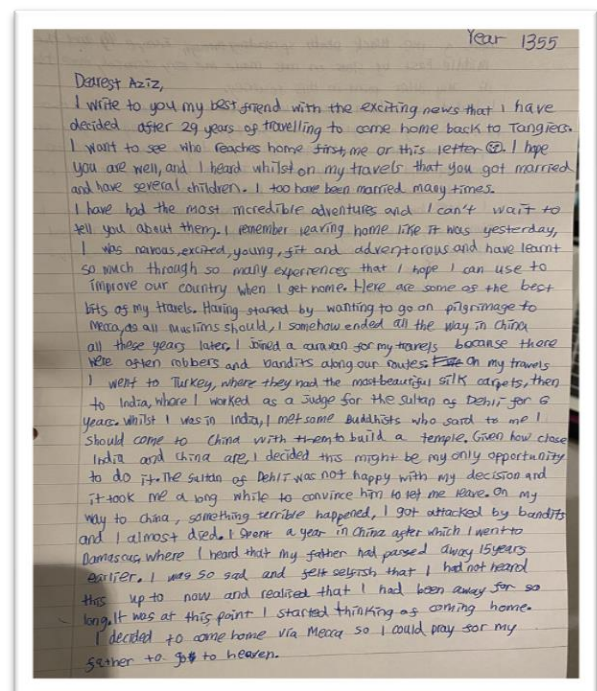 Year 1355
Dearest Aziz,
I write to you my best friend with the exciting news that I have
decided after 29 years of travelling to come home back to Tangiers.
I want to see who reaches home first, me or this letter ☺. I hope
you are well, and I heard whilst on my travels that you got married
and have several children. I too have been married many times.
I have had the most incredible adventures and I can't wait to
tell you about them. I remember leaving home like it was yesterday,
I was narvous, excited, young, fit and adventorous and have learnt
so much through so many experiences that I hope I can use to
improve our country when I get home. Here are some of the best
bits of my travels. Having started by wanting to go on pilgrimage to
Mecca, as all muslims should, I somehow ended all the way in China
all these years later. I joined a caravan for my travels becanse there
were often robbers and bandits along our routes. On my travels
I went to Turkey, where they had the most beautiful silk carpets, then
to India, where I worked as a judge for the Sultan of Dehli for 6
years. Whilst I was in India, I met some Buddhists who said to me I
should come to China with them to build a temple. Given how close
India and China are, I decided this might be my only opportunity
to do it. The Sultan of Dehli was not happy with my decision and
it took me a long while to convince him to let me leave. On my
way to China, something terrible happened, I got attacked by bandits
and I almost died. I spent a year in China after which I went to
Damascus, where I heard that my father had passed away 15 years
earlier. I was so sad and felt selfish that I had not heard
this up to now and realised that I had been away for so
long. It was at this point I started thinking of coming home.
I decided to come home via Mecca so I could pray for my
father to go to heaven.